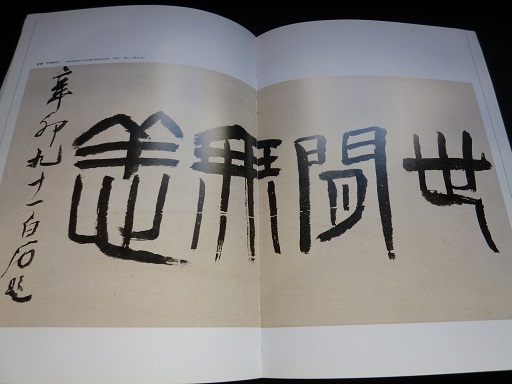 世間無恙
辛卯九十一白石題